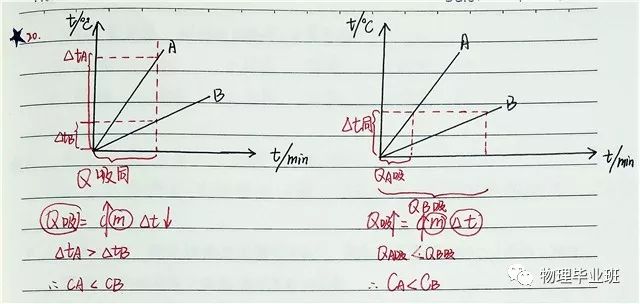 ★20.
t/℃
ΔtA
A
ΔtB
B
t/min
Q吸同
Q吸=c↑m Δt↓
ΔtA>ΔtB
∴ cA<cB
t/℃
A
B
Δt同
t/min
QA吸
QB吸
Q吸↑=c↑m Δt
QA吸<QB吸
∴ CA<CB
物理毕业班